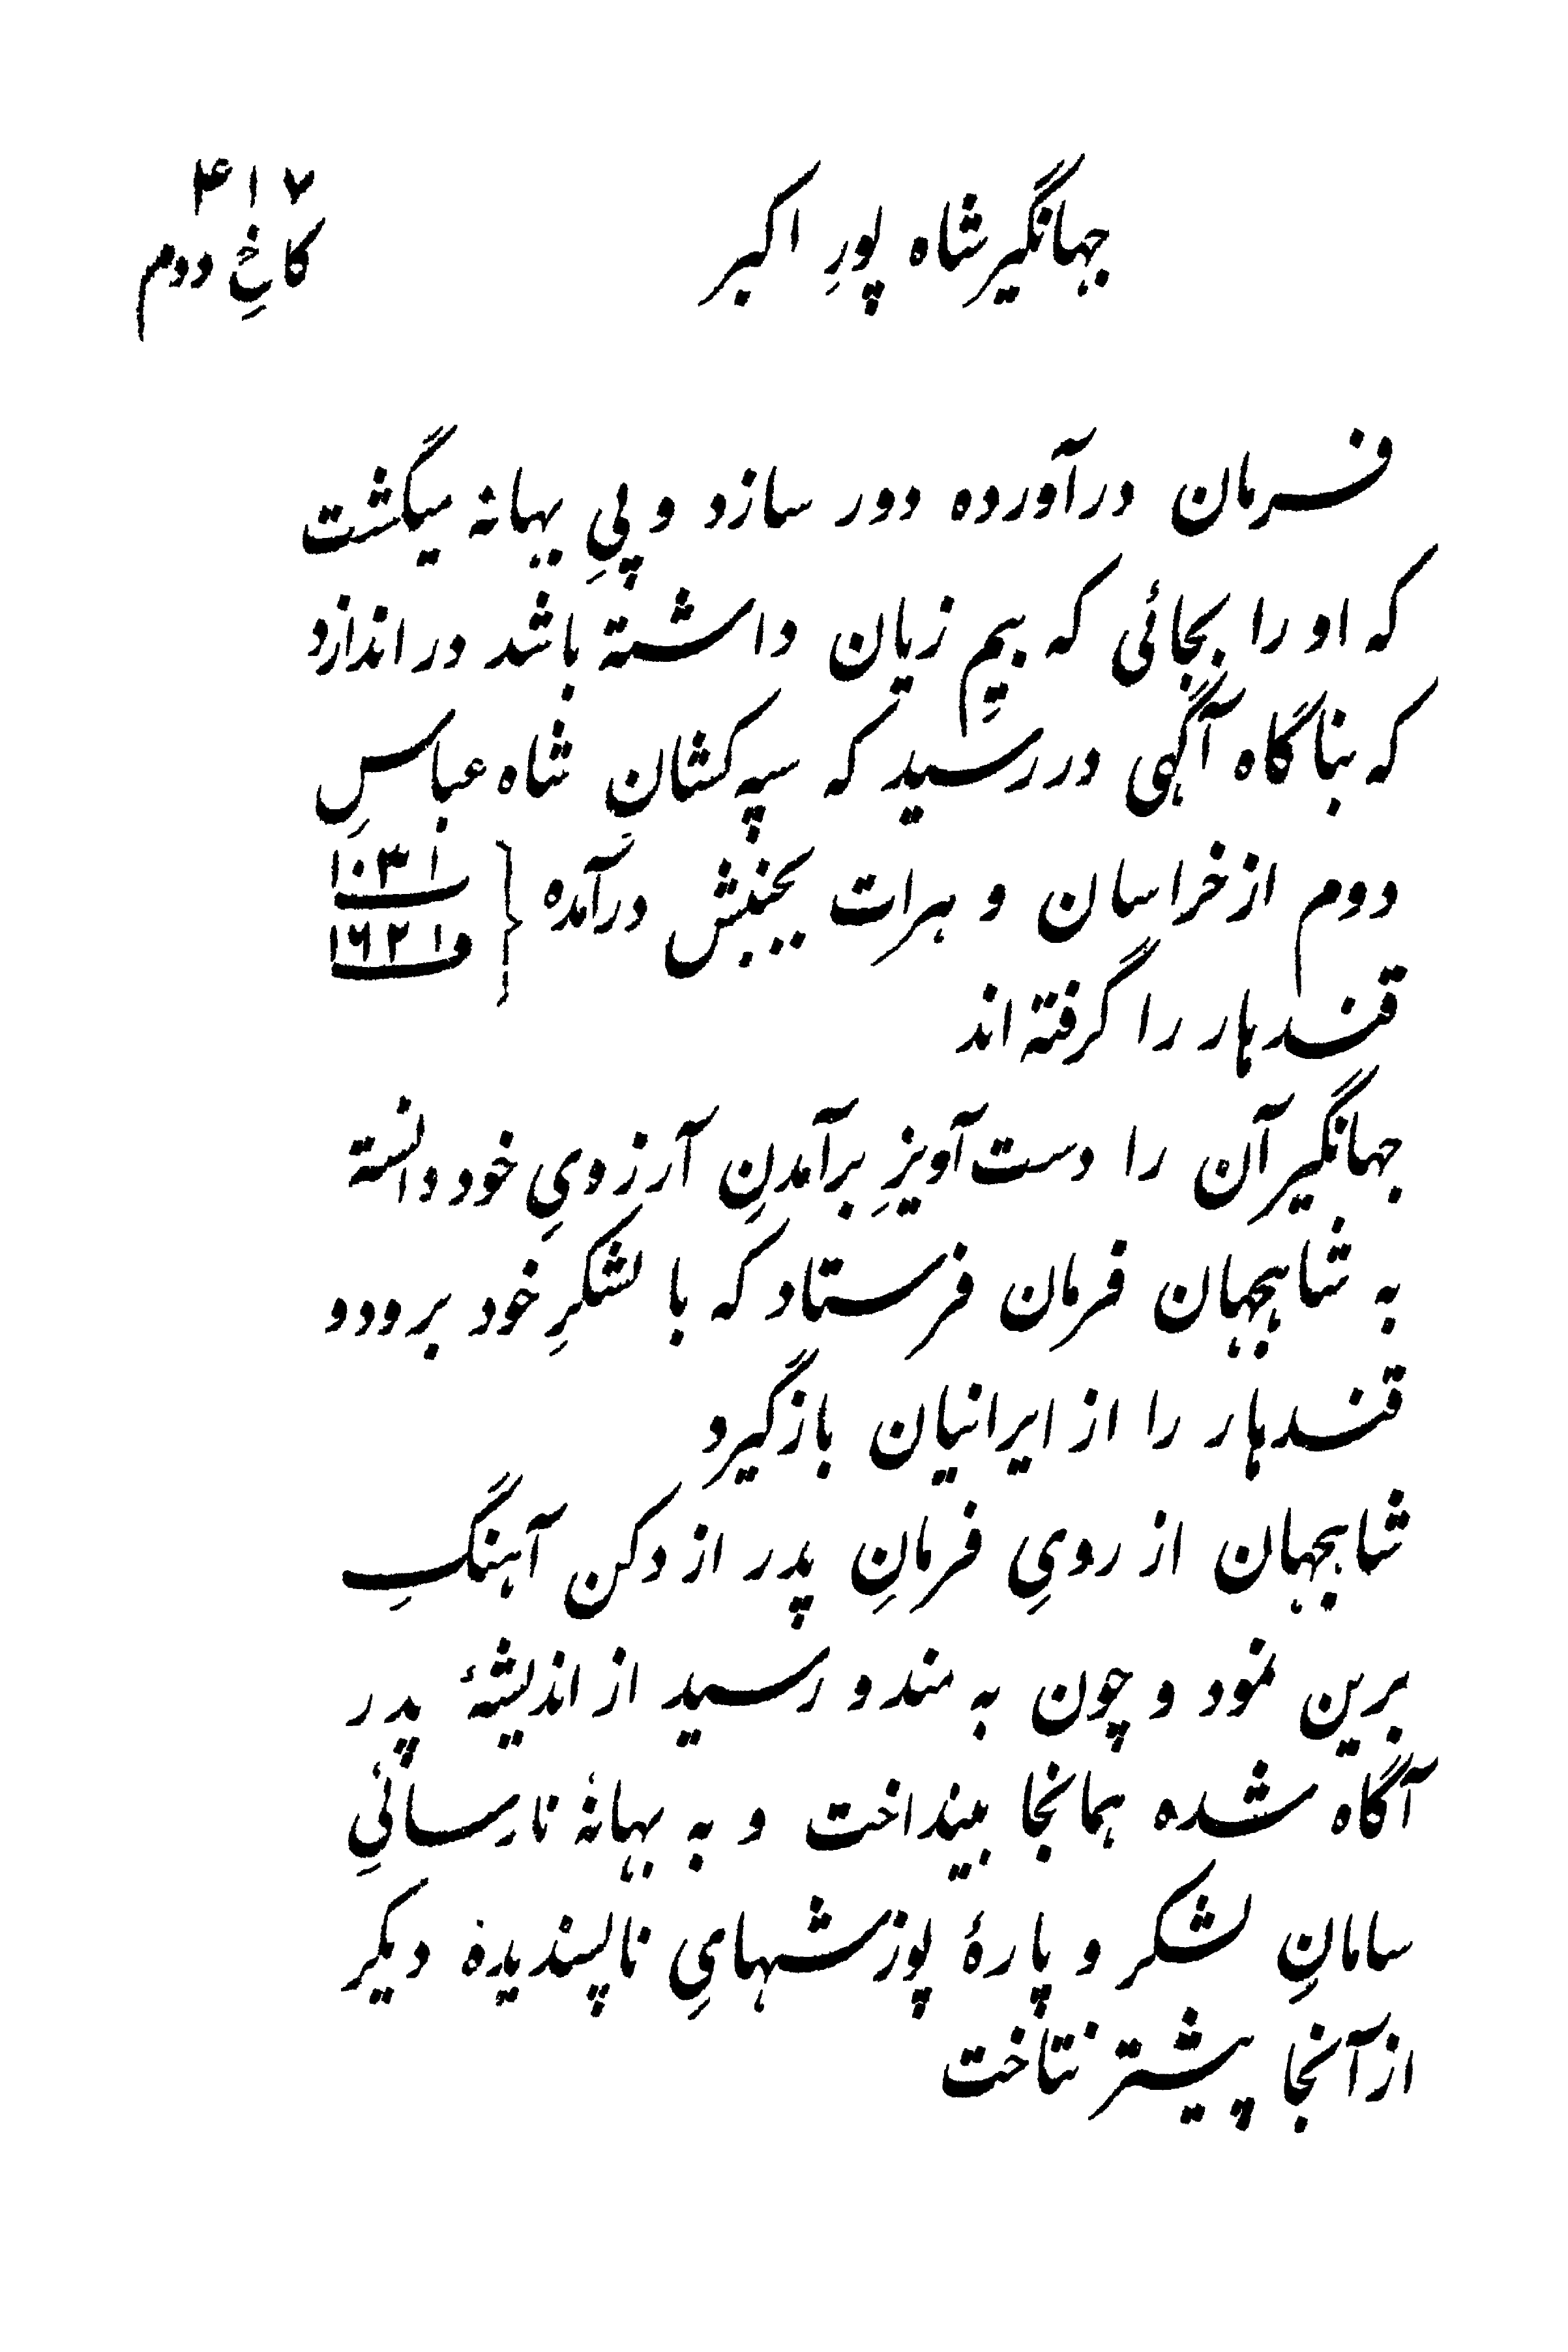 ۴۱۷
جهانگیرشاه پورِ اکبر
کاخِ دوم
فرمان درآورده دور سازد و پیِ بهانهٔ میگشت
که او را بجائی که بیمِ زیان داشته باشد در اندازد
که بناگاه آگهی دررسید که سپه‌کشانِ شاه عباسِ
دوم از خراسان و هرات بجنبش درآمده { ۱۰۳۱
و۱۶۲۱
قندهار را گرفته‌اند
جهانگیر آن را دست‌آویزِ برآمدنِ آرزویِ خود دانسته
به شاهجهان فرمان فرستاد که با لشکرِ خود برود و
قندهار را از ایرانیان بازگیرد
شاهجهان از رویِ فرمانِ پدر از دکن آهنگِ
برین نمود و چون به مندو رسید از اندیشهٔ پدر
آگاه شده همانجا بینداخت و به بهانهٔ نارسائیِ
سامانِ لشکر و پارهٔ پوزشهایِ ناپسندیدهٔ دیگر
از آنجا پیشتر نتاخت